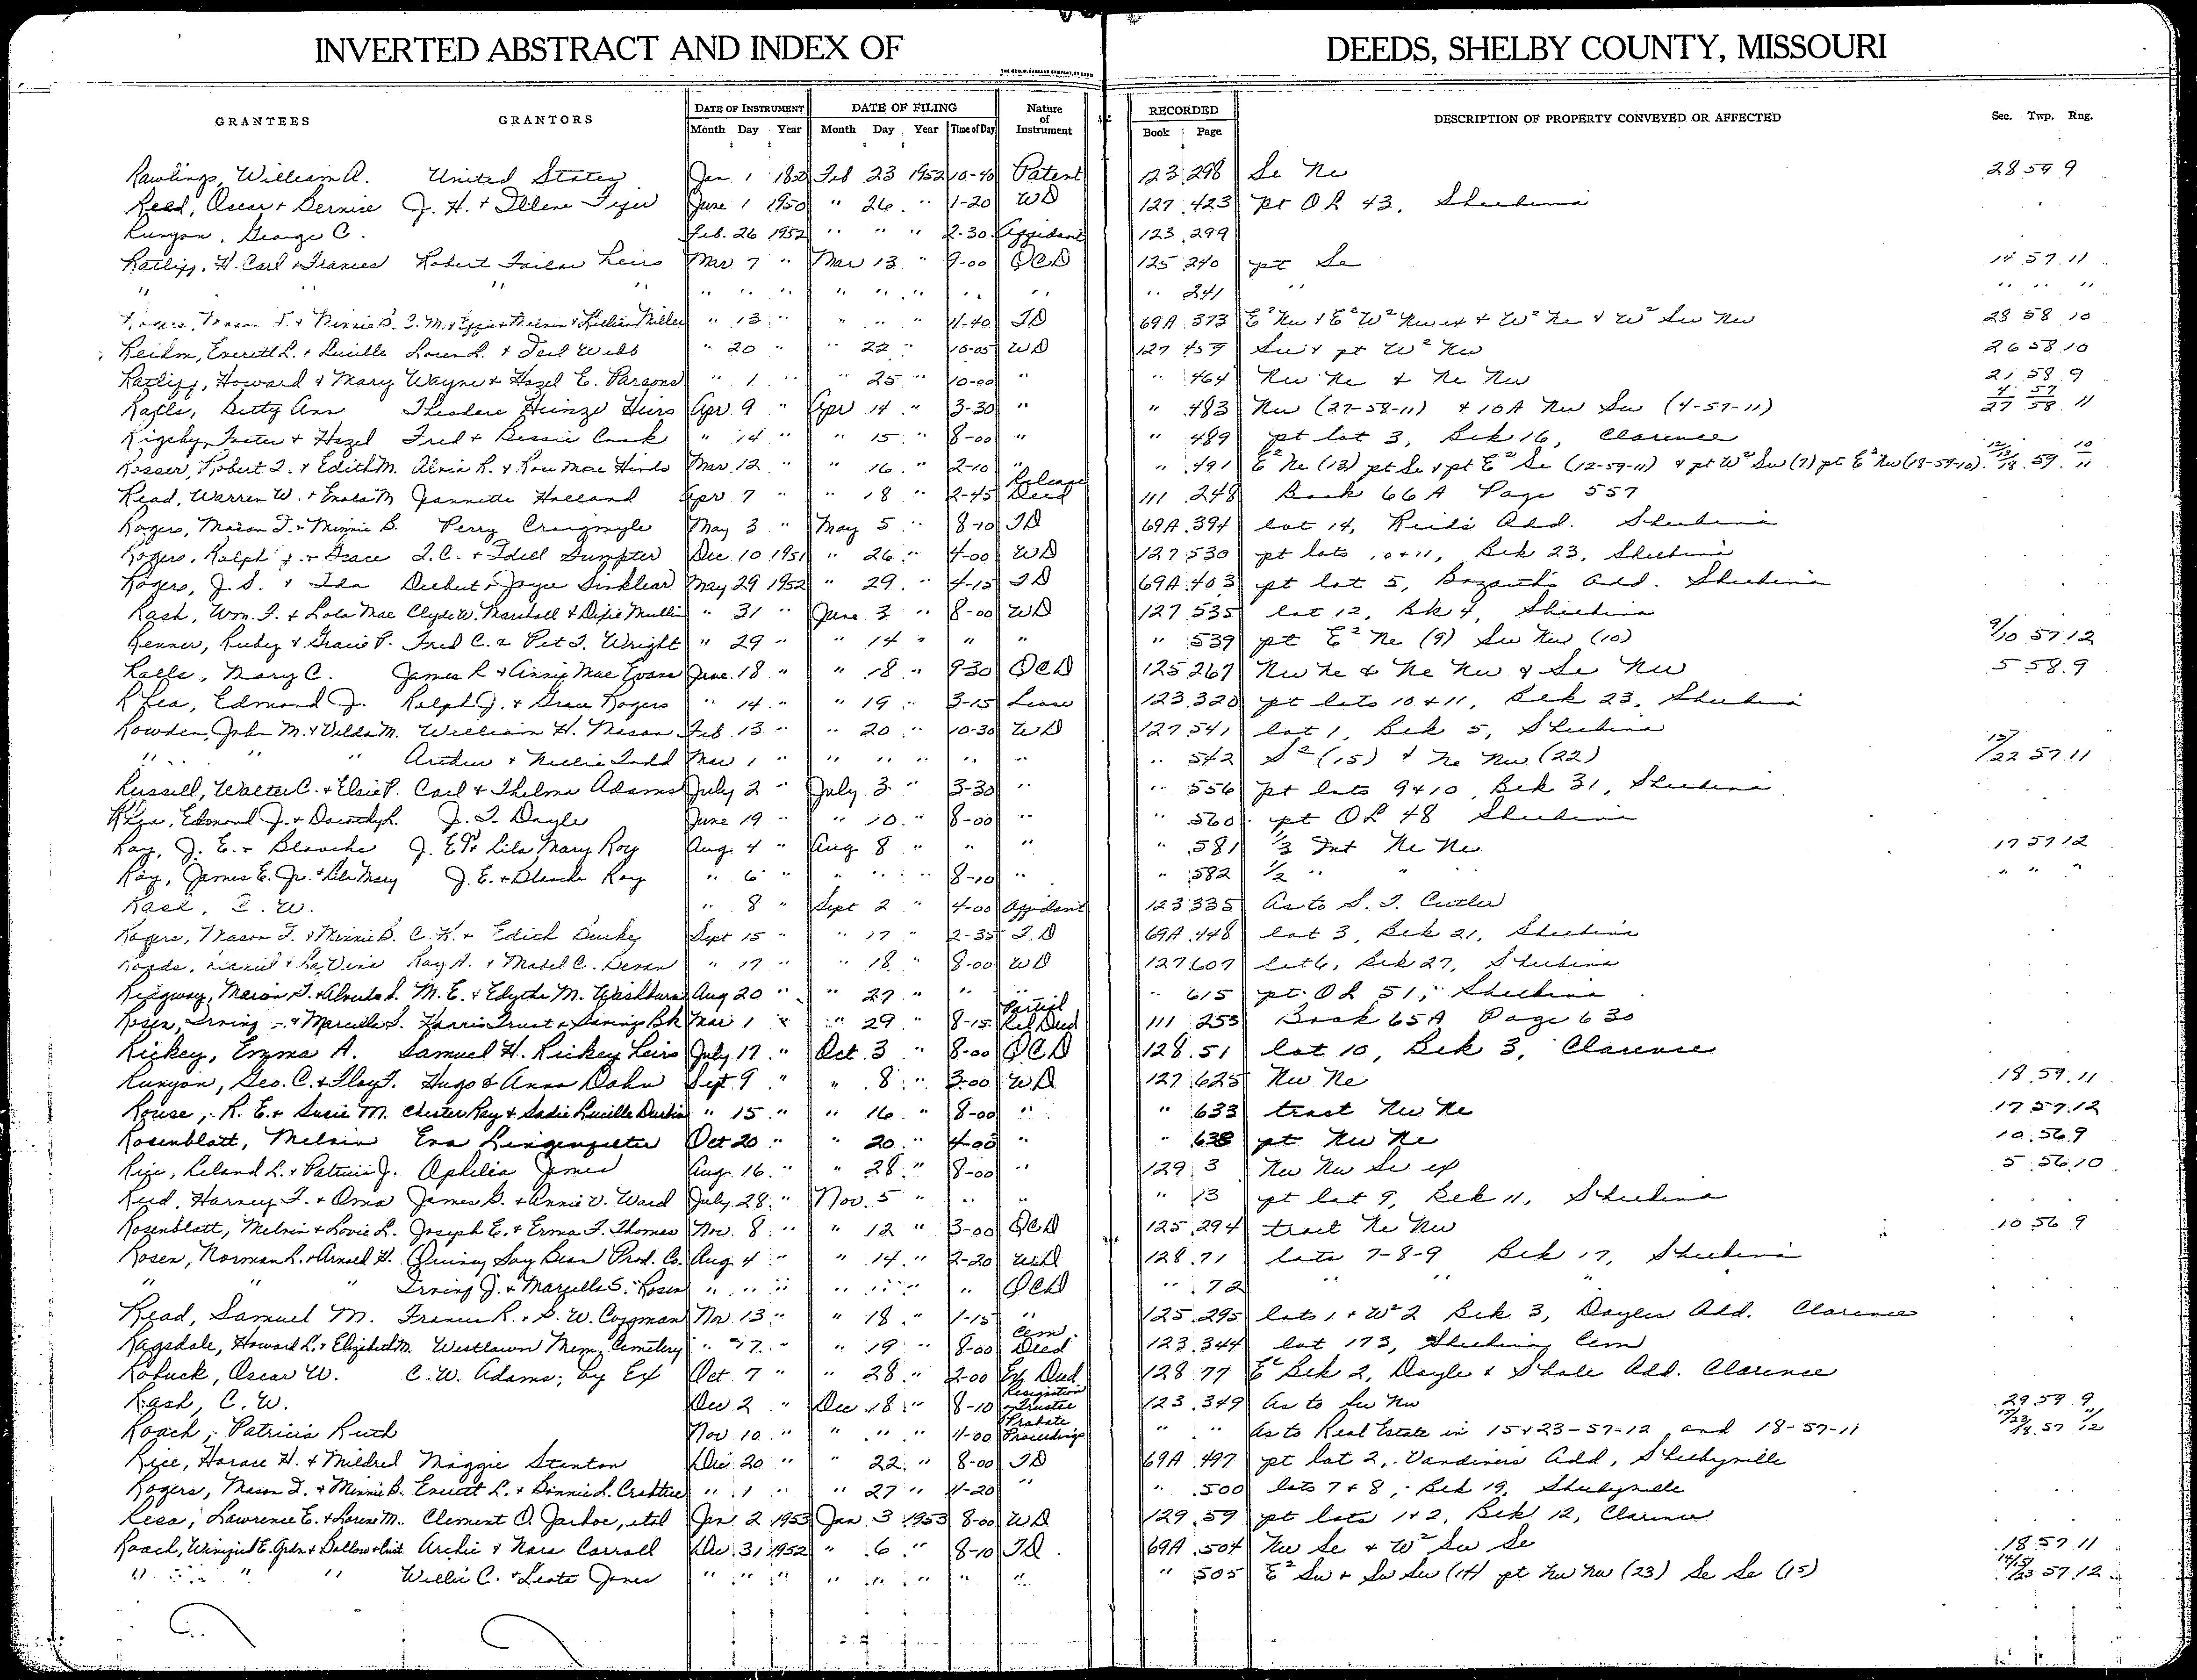 INVERTED ABSTRACT AND INDEX OF DEEDS, SHELBY COUNTY, MISSOURI
GRANTEES GRANTORS DATE OF INSTRUMENT DATE OF FILING Nature of Instrument RECORDED DESCRIPTION OF PROPERTY CONVEYED OR AFFECTED Sec. Twp. Rng.
Month Day Year Month Day Year Time of Day Book Page
Rawlings, William A. United States Jan 1 1850 Feb 23 1952 10-40 Patent 123 298 Se Ne 28 59 9
Reed, Oscar + Bernice J. H. + Illene Tyer June 1 1950 " 26 " 1-20 WD 127 423 pt OL 43, Shelbina
Runyon, George C. Feb. 26 1952 " " " 2-30 Affidavit 123 299
Ratliff, H. Carl + Frances Robert Heirs Mar 7 " Mar 13 " 9-00 QCD 125 240 pt Se 14 57 11
" " " " " " " " " " " " " 241 " " " "
Rogers, Mason T. + Minnie B. J. M. + Effie + Melvin + Lillian Miller " 13 " " " " 11-40 TD 69A 373 E² Nw + E² W² Nw ex + W² Ne + W² Sw Nw 28 58 10
Reihm, Everett L. + Lucille Loren L. + Webb " 20 " " 22 " 10-05 WD 127 459 Sw + pt W² Nw 26 58 10
Ratliff, Howard + Mary Wayne + Hazel E. Parsons " 1 " " 25 " 10-00 " " 464 Nw Ne + Ne Nw 21 58 9
Ralls, Betty Ann Theodore Heinze Heirs Apr 9 " Apr 14 " 3-30 " " 483 Nw (27-58-11) + 10A Nw Sw (4-57-11) 4/27 57/58 11
Rigsby, Foster + Hazel Fred + Bessie Cook " 14 " " 15 " 8-00 " " 489 pt lot 3, Blk 16, Clarence
Rosser, Robert T. + Edith M. Alvin R. + Rou Mae Hinds Mar. 12 " " 16 " 2-10 " " 491 E² Ne (13) pt Se + pt E² Se (12-59-11) + pt W² Sw (7) pt E² Nw (18-59-10) 12/13/18 59 10/11
Read, Warren W. + Enola M Jeannette Holland Apr 7 " " 18 " 2-45 Release Deed 111 248 Book 66A Page 557
Rogers, Mason T. + Minnie B. Perry Craigmyle May 3 " May 5 " 8-10 TD 69A 394 lot 14, Reids Add. Shelbina
Rogers, Ralph J. + Grace I. C. + Idell Sumpter Dec 10 1951 " 26 " 4-00 WD 127 530 pt lots 10 + 11, Blk 23, Shelbina
Rogers, J. S. + Ida Delbert + Joyce Sinklear May 29 1952 " 29 " 4-15 TD 69A 403 pt lot 5, Bozarth's Add. Shelbina
Rash, Wm. F. + Lola Mae Clyde W. Marshall + Dixie Mullin " 31 " June 3 " 8-00 WD 127 535 lot 12, Blk 4, Shelbina
Renner, Ruby + Gracie P. Fred C. + Pet T. Wright " 29 " " 14 " " " " 539 pt E² Ne (9) Sw Nw (10) 9/10 57 12
Ralls, Mary C. James R + Annie Mae Evans June 18 " " 18 " 9-30 QCD 125 267 Nw Ne + Ne Nw + Se Nw 5 58 9
Rhea, Edmond J. Ralph J. + Grace Rogers " 14 " " 19 " 3-15 Lease 123 320 pt lots 10 + 11, Blk 23, Shelbina
Rowden, John M. + Velda M. William H. Mason Feb 13 " " 20 " 10-30 WD 127 541 lot 1, Blk 5, Shelbina
" " " Arthur + Nellie Todd Mar 1 " " " " " " " 542 S² (15) + Ne Nw (22) 15/22 57 11
Russell, Walter C. + Elsie P. Carl + Thelma Adams July 2 " July 3 " 3-30 " " 556 pt lots 9 + 10, Blk 31, Shelbina
Rhea, Edmond J. + Dorothy L. J. T. Doyle June 19 " " 10 " 8-00 " " 560 pt OL 48 Shelbina
Roy, J. E. + Blanche J. E. Jr + Lila Mary Roy Aug 4 " Aug 8 " " " " 581 1/3 Int Ne Ne 17 57 12
Roy, James E. Jr. + Lila Mary J. E. + Blanche Roy " 6 " " " " 8-10 " " 582 1/2 " " " " "
Rash, C. W. " 8 " Sept 2 " 4-00 Affidavit 123 335 As to S. T. Cutler
Rogers, Mason T. + Minnie B. C. K. + Edith Burke Sept 15 " " 17 " 2-35 T.D 69A 448 lot 3, Blk 21, Shelbina
Roads, Daniel + LaVena Ray A. + Mabel C. Bevan " 17 " " 18 " 8-00 WD 127 607 lot 6, Blk 27, Shelbina
Ridgway, Marion T. + Alverda L. M. E. + Edythe M. Washburn Aug 20 " " 27 " " " " 615 pt OL 51, Shelbina
Rosen, Irving J. + Marcella S. Harris Trust + Savings Bk Mar 1 " " 29 " 8-15 Partial Rel Deed 111 253 Book 65A Page 630
Rickey, Emma A. Samuel H. Rickey Heirs July 17 " Oct 3 " 8-00 QCD 128 51 lot 10, Blk 3, Clarence
Runyon, Geo. C. + Floy F. Hugo + Anna Dahn Sept 9 " " 8 " 3-00 WD 127 625 Nw Ne 18 59 11
Rouse, R. E. + Susie M. Chester Ray + Sadie Lucille Durbin " 15 " " 16 " 8-00 " " 633 tract Nw Ne 17 57 12
Rosenblatt, Melvin Eva Lingenfelter Oct 20 " " 20 " 4-00 " " 638 pt Nw Ne 10 56 9
Rice, Leland L. + Patricia J. Ophelia Jones Aug. 16 " " 28 " 8-00 " 129 3 Nw Nw Se ex 5 56 10
Reed, Harvey F. + Oma James G. + Annie V. Ward July 28 " Nov. 5 " " " " 13 pt lot 9, Blk 11, Shelbina
Rosenblatt, Melvin + Lovie L. Joseph E. + Erma F. Thomas Nov. 8 " " 12 " 3-00 QCD 125 294 tract Ne Nw 10 56 9
Rosen, Norman L. + Arnold H. Quincy Soy Bean Prod. Co. Aug 4 " " 14 " 2-20 WD 128 71 lots 7-8-9 Blk 17, Shelbina
" " " Irving J. + Marcella S. Rosen " " " " " " " QCD " 72 " " "
Read, Samuel M. Frances R. + S. W. Cozgman Nov 13 " " 18 " 1-15 " 125 295 lots 1 + W² 2 Blk 3, Doyles Add. Clarence
Ragsdale, Howard L. + Elizabeth M. Westlawn Mem. Cemetery " 17 " " 19 " 8-00 Cem. Deed 123 344 lot 173, Shelbina Cem
Robuck, Oscar W. C. W. Adams, by Ex Oct 7 " " 28 " 2-00 Ex Deed 128 77 E² Blk 2, Doyle + Shale Add. Clarence
Rash, C. W. Dec 2 " Dec 18 " 8-10 Resignation Trustee 123 349 As to Sw Nw 29 59 9
Roach, Patricia Ruth Nov. 10 " " " " 11-00 Probate Proceedings " " As to Real Estate in 15 + 23-57-12 and 18-57-11 15/23/18 57 11/12
Rice, Horace H. + Mildred Maggie Stanton Dec 20 " " 22 " 8-00 TD 69A 497 pt lot 2, Vandivers Add, Shelbyville
Rogers, Mason T. + Minnie B. Everett L. + Binnie L. Crabtree " 1 " " 27 " 11-20 " " 500 lots 7 + 8, Blk 19, Shelbyville
Resa, Lawrence E. + Lorene M. Clement O. Jarboe, etal Jan 2 1953 Jan. 3 1953 8-00 WD 129 59 pt lots 1 + 2, Blk 12, Clarence
Roach, Winifred E. Grdn + Archie + Nora Carroll Dec. 31 1952 " 6 " 8-10 TD 69A 504 Nw Se + W² Sw Se 18 57 11
" " " Willie C. + Leota Jones " " " " " " " " " 505 E² Sw + Sw Sw (14) pt Nw Nw (23) Se Se (15) 14/15/23 57 12